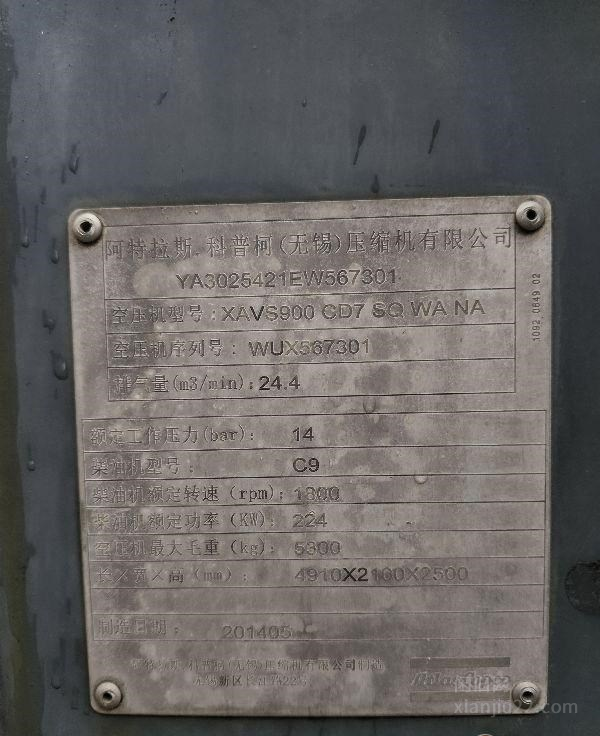 阿特拉斯.科普柯(无锡)压缩机有限公司
YA3025421EW567301
空压机型号:XAVS900 CD7 SQ WA NA
空压机序列号: WUX567301
排气量(m3/min):24.4
1092 0649 02
额定工作压力(bar): 14
柴油机型号: C9
柴油机额定转速(rpm):1800
柴油机额定功率(KW): 224
空压机最大毛重(kg): 5300
长×宽×高(mm): 4910X2100X2500
制造日期: 201405
阿特拉斯.科普柯(无锡)压缩机有限公司制造
无锡新区长江路22号
Atlas Copco